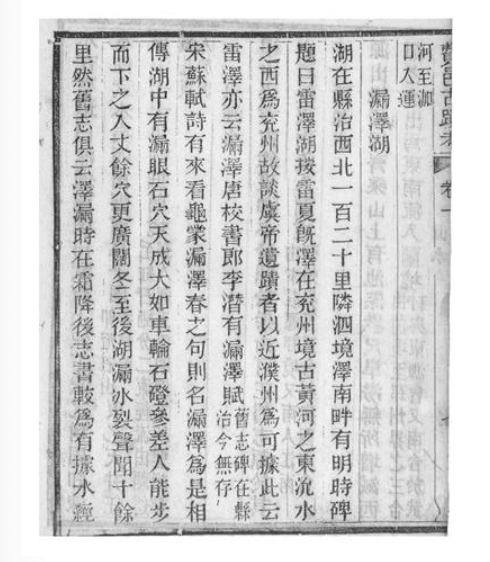 費邑古蹟考 卷一
河至泇
口入運
漏澤湖
湖在縣治西北一百二十里隣泗境澤南畔有明時碑
題曰雷澤湖按雷夏旣澤在兖州境古黃河之東沇水
之西爲兖州故談虞帝遺蹟者以近濮州爲可據此云
雷澤亦云漏澤唐校書郎李潜有漏澤賦舊志碑在縣治今無存
宋蘇軾詩有來看龜蒙漏澤春之句則名漏澤爲是相
傳湖中有漏眼石穴天成大如車輪石磴參差人能步
而下之入丈餘穴更廣闊冬至後湖漏冰裂聲聞十餘
里然舊志俱云澤漏時在霜降後志書較爲有據水經